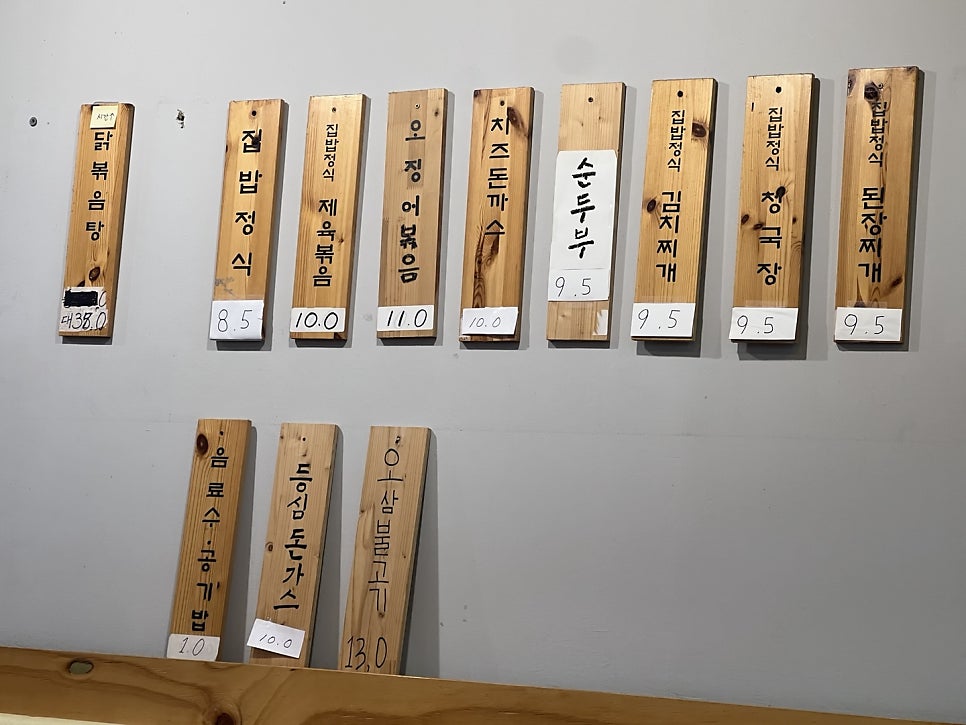 닭볶음탕
대38.0
집밥정식
8.5
집밥정식 제육볶음
10.0
오징어볶음
11.0
치즈돈까수
10.0
순두부
9.5
집밥정식 김치찌개
9.5
집밥정식 청국장
9.5
집밥정식 된장찌개
9.5
음료수·공기밥
1.0
등심돈가스
10.0
오삼불고기
13.0